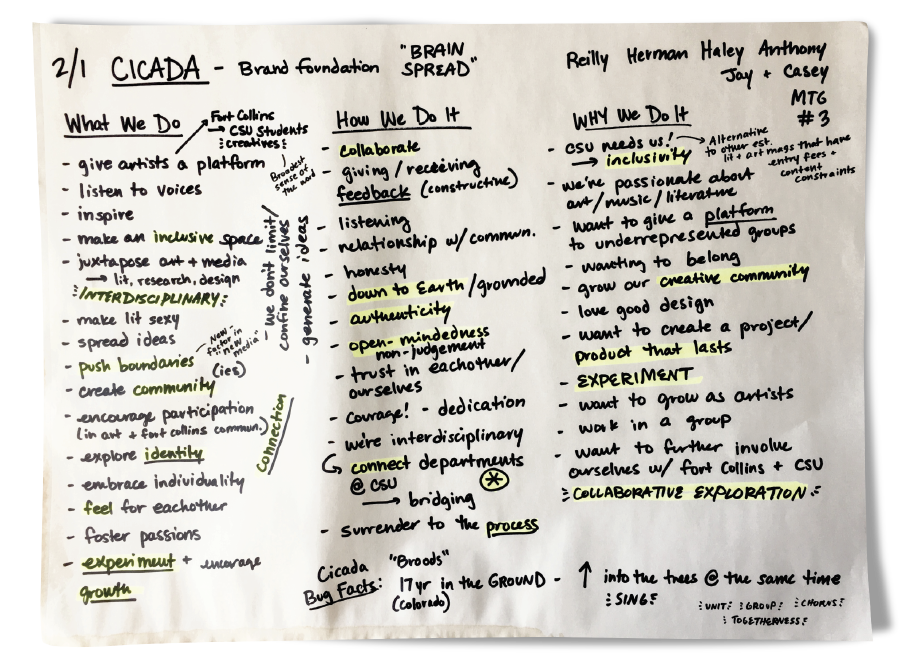 2/1 CICADA - Brand foundation "BRAIN SPREAD"
Reilly Herman Haley Anthony
Jay + Casey
MTG
#3
What We Do
Fort Collins
→ CSU Students
creatives
Broadest
sense of
the word
- give artists a platform
- listen to voices
- inspire
- make an inclusive space
- juxtapose art + media
→ lit, research, design
INTERDISCIPLINARY
- make lit sexy
- spread ideas
- New -
factor in
"new
media"
- push boundaries
(ies)
- create community
- encourage participation
(in art + fort collins commun.)
- explore identity
- embrace individuality
- feel for eachother
- foster passions
- experiment + encourage
growth
- we don't limit/
confine ourselves
- generate ideas
connection
How We Do It
- collaborate
- giving / receiving
feedback (constructive)
- listening
- relationship w/ commun.
- honesty
- down to Earth / grounded
- authenticity
- open-mindedness
non-judgement
- trust in eachother/
ourselves
- courage! - dedication
- we're interdisciplinary
connect departments
@ CSU
→ bridging
- surrender to the process
WHY We Do It
- CSU needs us!
→ inclusivity
→ Alternative
to other est.
lit + art mags that have
entry fees +
content
constraints
- we're passionate about
art/music/literature
- want to give a platform
to underrepresented groups
- wanting to belong
- grow our creative community
- love good design
- want to create a project/
product that lasts
- EXPERIMENT
- want to grow as artists
- work in a group
- want to further involve
ourselves w/ fort Collins + CSU
COLLABORATIVE EXPLORATION
Cicada
Bug Facts:
"Broods"
17yr in the GROUND - ↑ into the trees @ the same time
(colorado)
SING
UNIT GROUP CHORUS
TOGETHERNESS